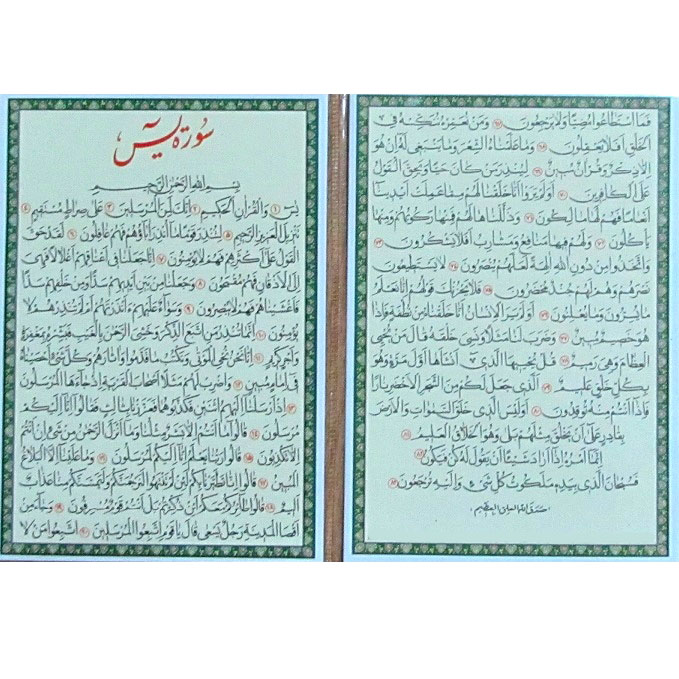 سورة يس
بسم الله الرحمن الرحيم
يس ١ والقرآن الحكيم ٢ إنك لمن المرسلين ٣ على صراط مستقيم ٤
تنزيل العزيز الرحيم ٥ لتنذر قوما ما أنذر آباؤهم فهم غافلون ٦ لقد حق
القول على أكثرهم فهم لا يؤمنون ٧ إنا جعلنا في أعناقهم أغلالا فهي
إلى الأذقان فهم مقمحون ٨ وجعلنا من بين أيديهم سدا ومن خلفهم سدا
فأغشيناهم فهم لا يبصرون ٩ وسواء عليهم أأنذرتهم أم لم تنذرهم لا
يؤمنون ١٠ إنما تنذر من اتبع الذكر وخشي الرحمن بالغيب فبشره بمغفرة
وأجر كريم ١١ إنا نحن نحيي الموتى ونكتب ما قدموا وآثارهم وكل شيء أحصيناه
في إمام مبين ١٢ واضرب لهم مثلا أصحاب القرية إذ جاءها المرسلون
١٣ إذ أرسلنا إليهم اثنين فكذبوهما فعززنا بثالث فقالوا إنا إليكم
مرسلون ١٤ قالوا ما أنتم إلا بشر مثلنا وما أنزل الرحمن من شيء إن أنتم
إلا تكذبون ١٥ قالوا ربنا يعلم إنا إليكم لمرسلون ١٦ وما علينا إلا البلاغ
المبين ١٧ قالوا إنا تطيرنا بكم لئن لم تنتهوا لنرجمنكم وليمسنكم منا عذاب
أليم ١٨ قالوا طائركم معكم أئن ذكرتم بل أنتم قوم مسرفون ١٩ وجاء من
أقصا المدينة رجل يسعى قال يا قوم اتبعوا المرسلين ٢٠ اتبعوا من لا
فما استطاعوا مضيا ولا يرجعون ٦٧ ومن نعمره ننكسه في
الخلق أفلا يعقلون ٦٨ وما علمناه الشعر وما ينبغي له إن هو
إلا ذكر وقرآن مبين ٦٩ لينذر من كان حيا ويحق القول
على الكافرين ٧٠ أولم يروا أنا خلقنا لهم مما عملت أيدينا
أنعاما فهم لها مالكون ٧١ وذللناها لهم فمنها ركوبهم ومنها
يأكلون ٧٢ ولهم فيها منافع ومشارب أفلا يشكرون ٧٣
واتخذوا من دون الله آلهة لعلهم ينصرون ٧٤ لا يستطيعون
نصرهم وهم لهم جند محضرون ٧٥ فلا يحزنك قولهم إنا نعلم
ما يسرون وما يعلنون ٧٦ أولم ير الإنسان أنا خلقناه من نطفة فإذا
هو خصيم مبين ٧٧ وضرب لنا مثلا ونسي خلقه قال من يحيي
العظام وهي رميم ٧٨ قل يحييها الذي أنشأها أول مرة وهو
بكل خلق عليم ٧٩ الذي جعل لكم من الشجر الأخضر نارا
فإذا أنتم منه توقدون ٨٠ أوليس الذي خلق السموات والأرض
بقادر على أن يخلق مثلهم بلى وهو الخلاق العليم ٨١
إنما أمره إذا أراد شيئا أن يقول له كن فيكون ٨٢
فسبحان الذي بيده ملكوت كل شيء وإليه ترجعون ٨٣
صدق الله العلي العظيم